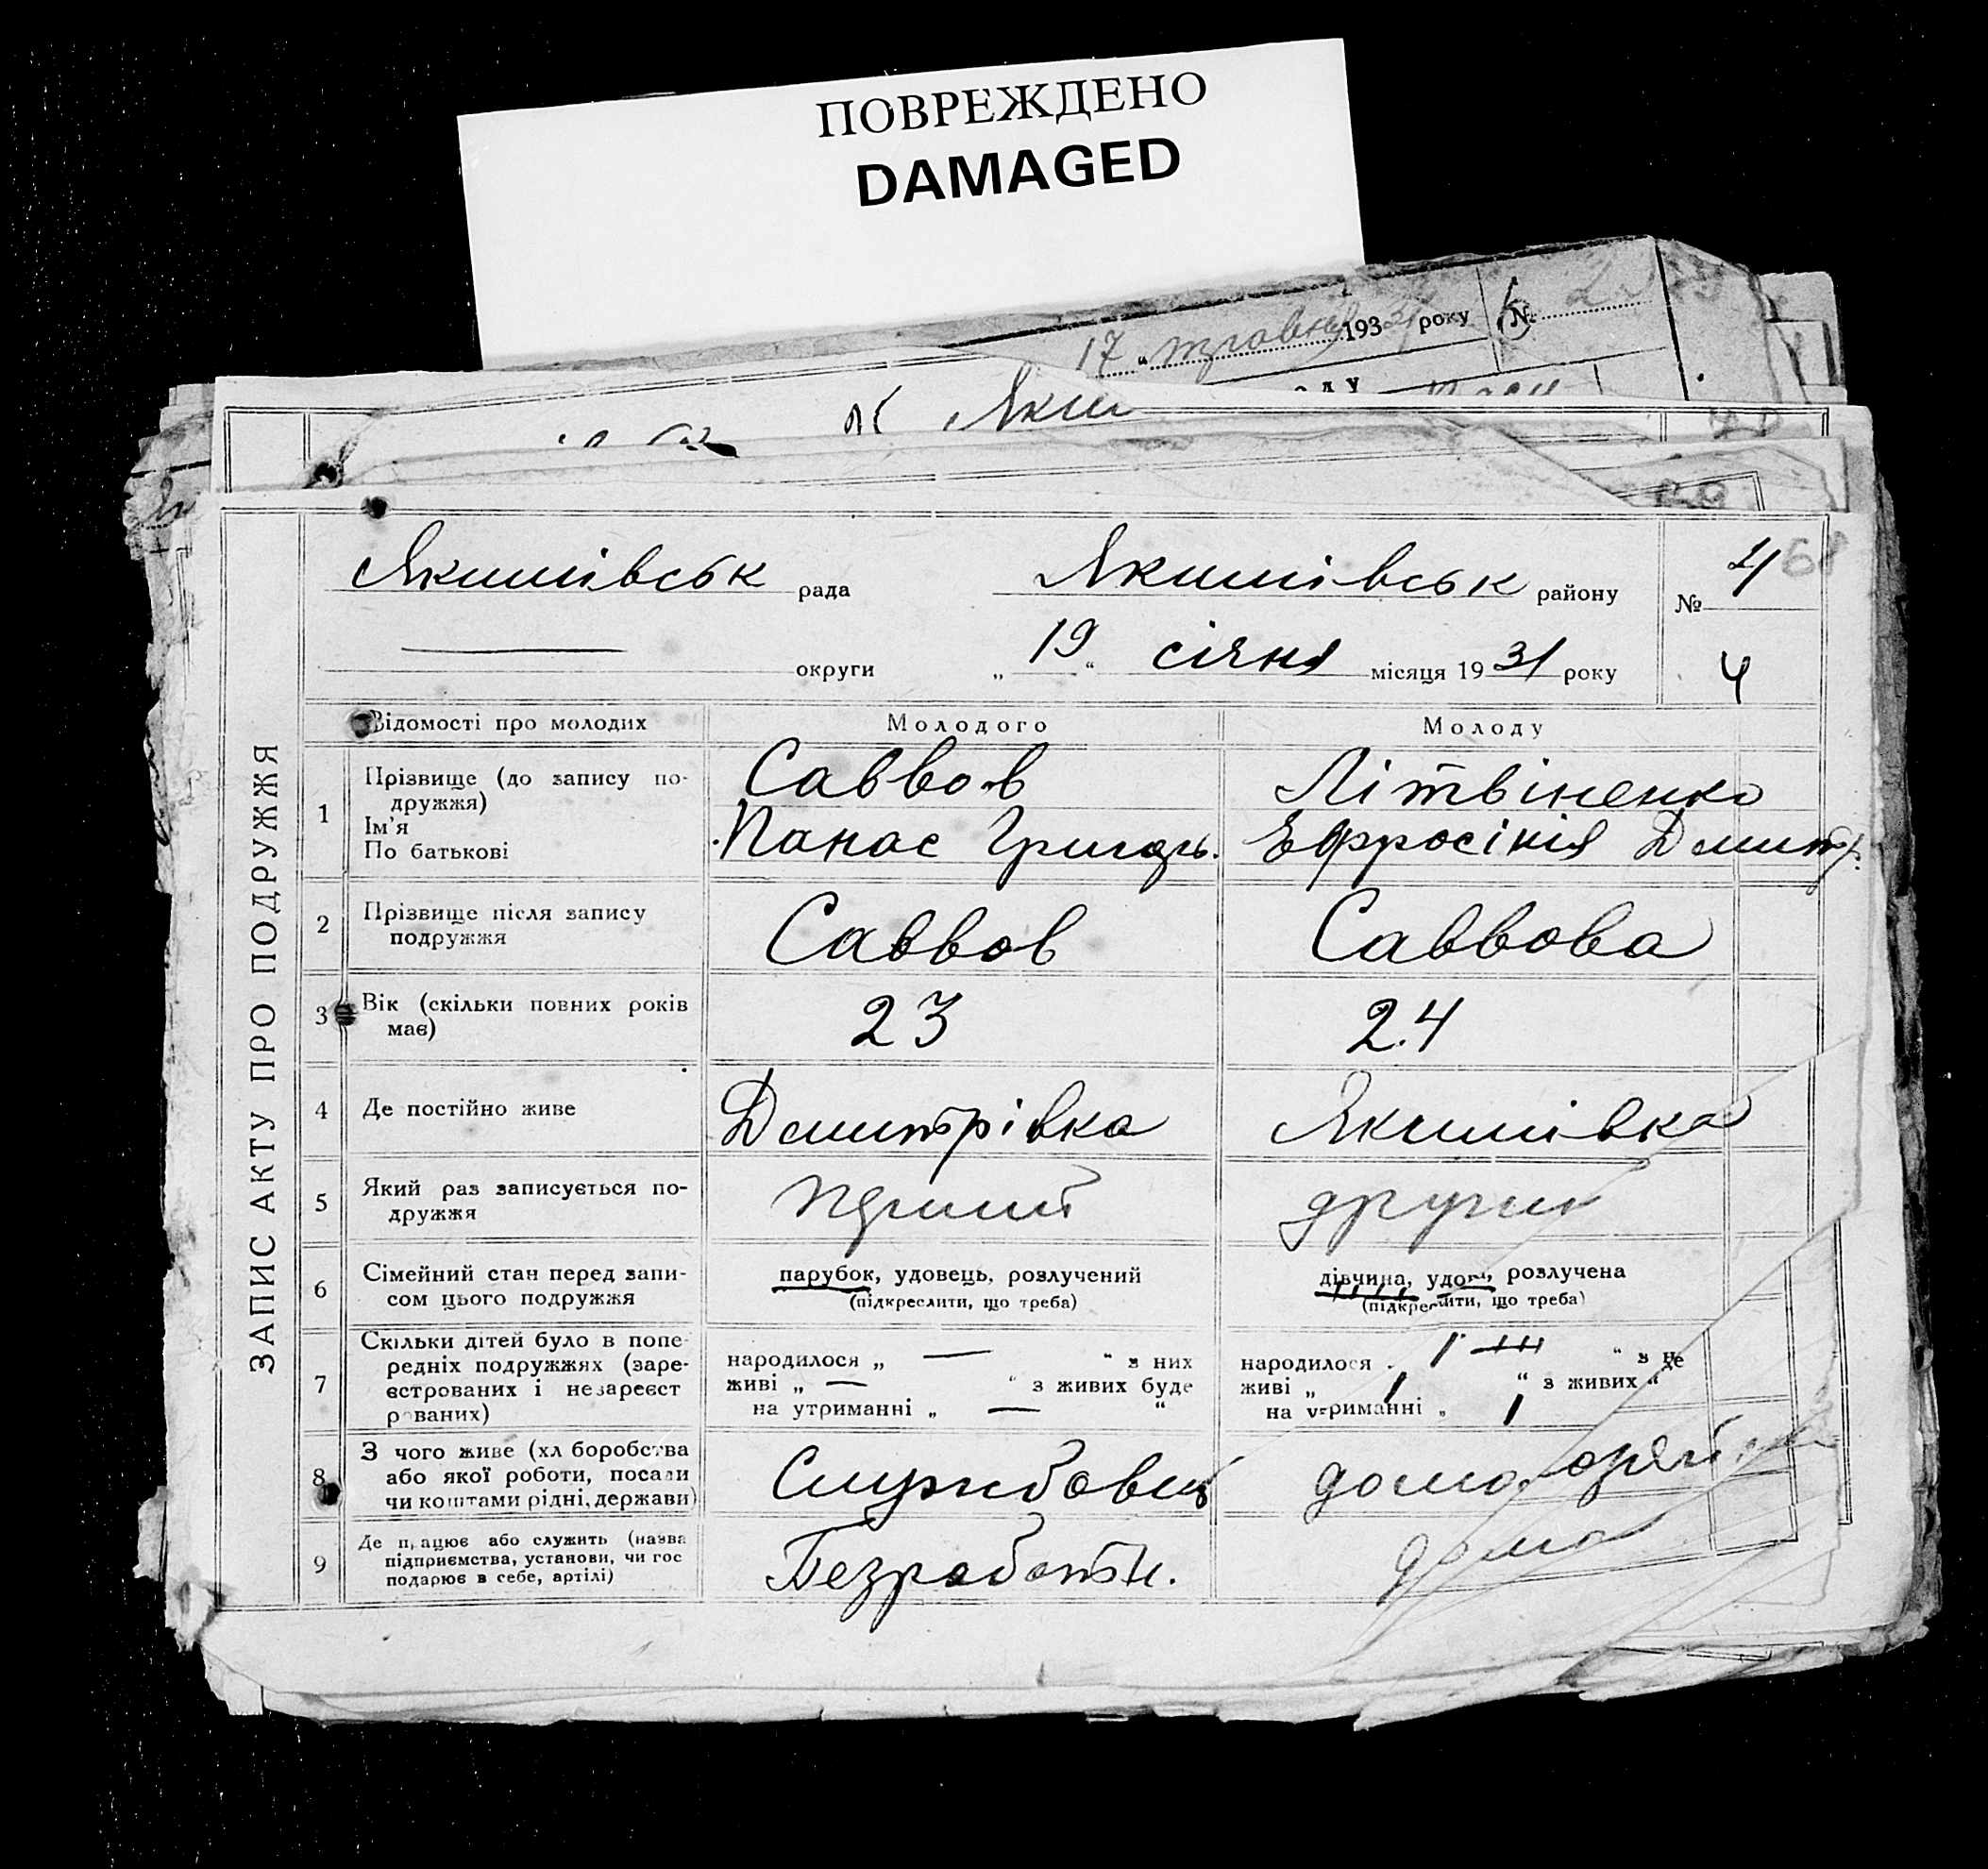 ПОВРЕЖДЕНО
DAMAGED
17 " травня 193 року №
Яким
Якимівськ рада Якимівськ району № 4 68
округи „ 19 “ січня місяця 1931 року 4
ЗАПИС АКТУ ПРО ПОДРУЖЖЯ
Відомості про молодих Молодого Молоду
1 Прізвище (до запису по-
дружжя)
Ім'я
По батькові
Саввов
Панас Григорь.
Літвіненко
Ефросінія Дмитр.
2 Прізвище після запису
подружжя
Саввов Саввова
3 Вік (скільки повних років
має)
23 24
4 Де постійно живе Дмитрівка Якимівка
5 Який раз записується по-
дружжя
перший други
6 Сімейний стан перед запи-
сом цього подружжя
парубок, удовець, розлучений
(підкреслити, що треба)
дівчина, удова, розлучена
(підкреслити, що треба)
7 Скільки дітей було в попе-
редніх подружжях (заре-
єстрованих і незареєст
рованих)
народилося „ — “ з них
живі „ — “ з живих буде
на утриманні „ — “
народилося 1 “ з не
живі „ 1 “ з живих “
на утриманні „ 1
8 З чого живе (хліборобства
або якої роботи, посади
чи коштами рідні, держави)
Службовець
9 Де працює або служить (назва
підприємства, установи, чи гос
подарює в себе, артілі)
Безработн.
дома